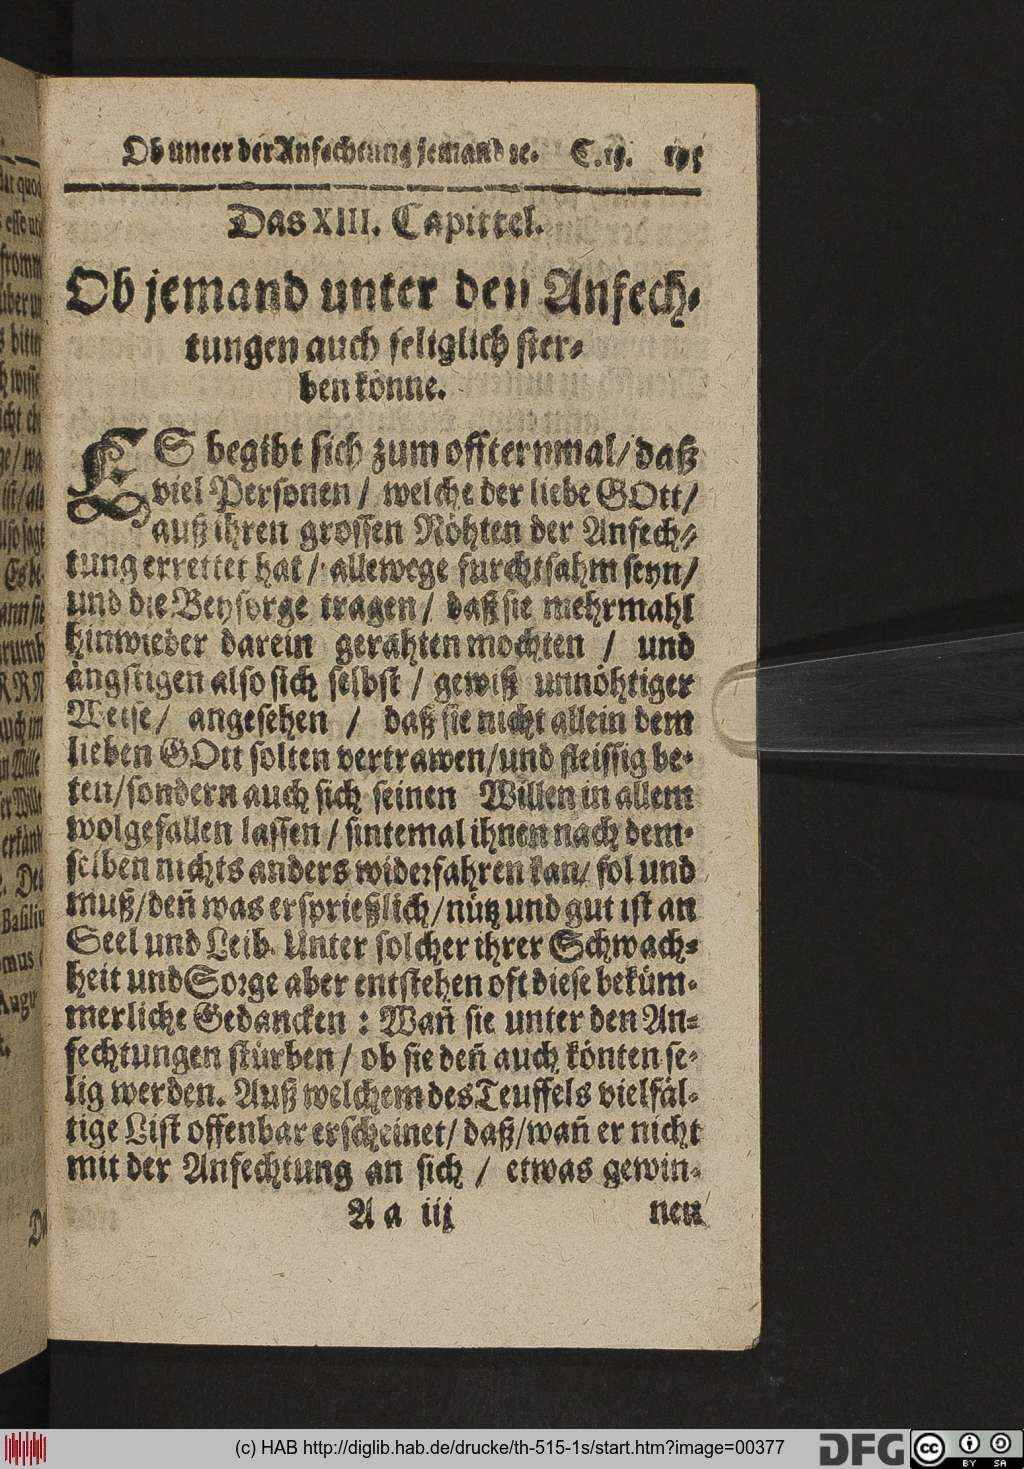 Ob unter der Anfechtung jemand ꝛc. C. 13. 195
Das XIII. Capittel.
Ob jemand unter den Anfech-
tungen auch seliglich ster-
ben könne.
ES begibt sich zum offternmal/ daß
viel Personen / welche der liebe GOtt/
auß ihren grossen Nöhten der Anfech-
tung errettet hat / allewege furchtsahm seyn/
und die Beysorge tragen / daß sie mehrmahl
hinwieder darein gerahten mochten / und
ängstigen also sich selbst / gewiß unnöhtiger
Weise / angesehen / daß sie nicht allein dem
lieben GOtt solten vertrawen/und fleissig be-
ten/sondern auch sich seinen Willen in allem
wolgefallen lassen / sintemal ihnen nach dem-
selben nichts anders widerfahren kan/ sol und
muß/deñ was ersprießlich/nütz und gut ist an
Seel und Leib. Unter solcher ihrer Schwach-
heit und Sorge aber entstehen oft diese beküm-
merliche Gedancken : Wañ sie unter den An-
fechtungen stürben / ob sie deñ auch könten se-
lig werden. Auß welchem des Teuffels vielfäl-
tige List offenbar erscheinet/ daß/wañ er nicht
mit der Anfechtung an sich / etwas gewin-
A a iij nen
dat quod
fromm
bitte
also sagt
Es be-
ann sie
rumb
auch im
Wille
Basiliu
Augu
(c) HAB http://diglib.hab.de/drucke/th-515-1s/start.htm?image=00377
DFG
cc BY SA